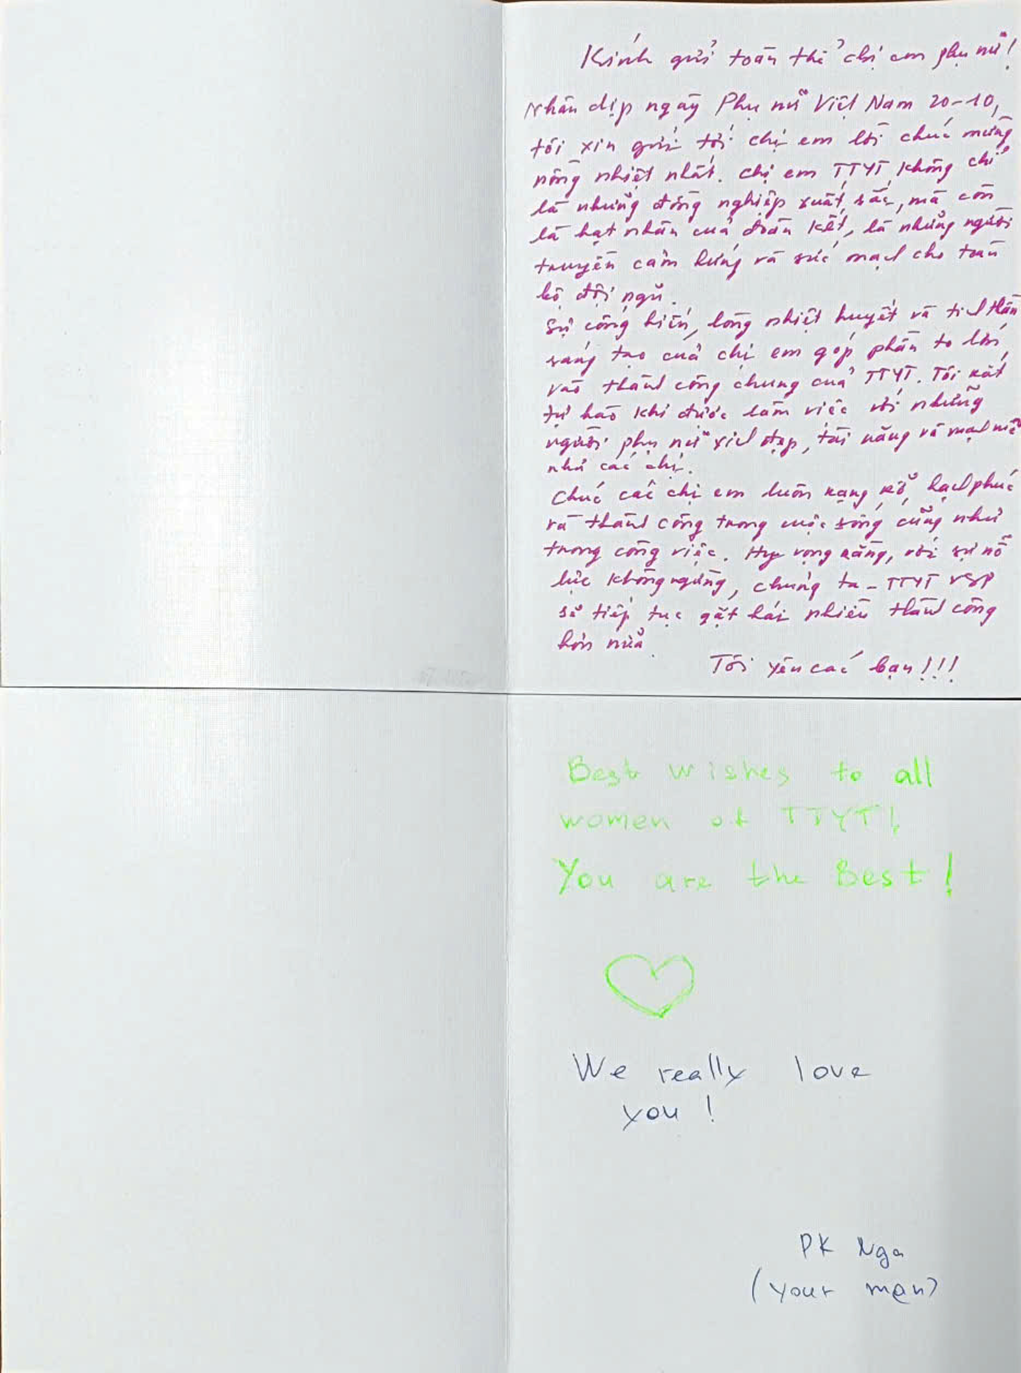 Kính gửi toàn thể chị em phụ nữ!
Nhân dịp ngày Phụ nữ Việt Nam 20-10,
tôi xin gửi tới chị em lời chúc mừng
nồng nhiệt nhất. Chị em TTYT không chỉ
là những đồng nghiệp xuất sắc, mà còn
là hạt nhân của đoàn kết, là những người
truyền cảm hứng và sức mạnh cho toàn
bộ đội ngũ.
Sự cống hiến, lòng nhiệt huyết và tinh thần
sáng tạo của chị em góp phần to lớn
vào thành công chung của TTYT. Tôi rất
tự hào khi được làm việc với những
người phụ nữ xinh đẹp, tài năng và mạnh mẽ
như các chị.
Chúc các chị em luôn rạng rỡ, hạnh phúc
và thành công trong cuộc sống cũng như
trong công việc. Hy vọng rằng, với sự nỗ
lực không ngừng, chúng ta - TTYT VSP
sẽ tiếp tục gặt hái nhiều thành công
hơn nữa.
Tôi yêu các bạn!!!
Best wishes to all
women of TTYT!
You are the Best!
We really love
you!
PK Nga
(your men)